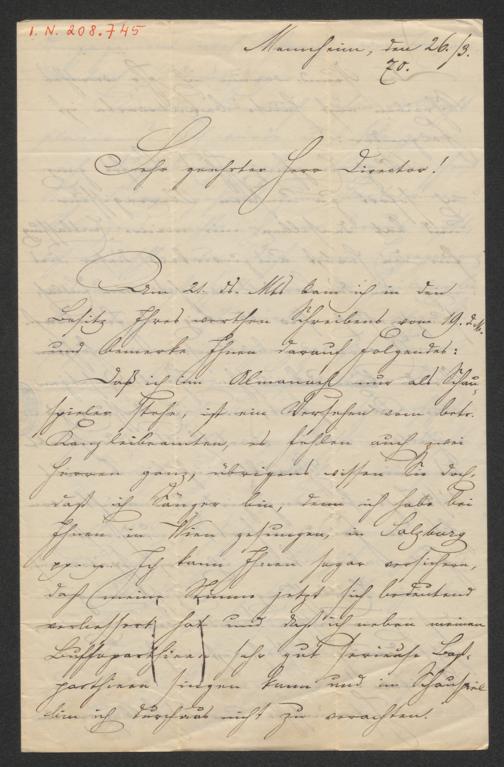 I. N. 208.745
Mannheim, den 26./3.
70.
Sehr geehrter Herr Director!
Am 21. ds. Mts kam ich in den
Besitz Ihres werthen Schreibens vom 19. d. M.
und bemerke Ihnen darauf Folgendes:
Daß ich im Almanach nur als Schau-
spieler stehe, ist ein Versehen vom betr.
Kanzleibeamten, es fehlen auch zwei
Herren ganz, übrigens wissen Sie doch,
daß ich Sänger bin, denn ich habe bei
Ihnen in Wien gesungen, in Salzburg
pp. Ich kann Ihnen sogar versichern,
daß meine Stimme jetzt sich bedeutend
verbessert hat und daß ich neben meinen
Buffoparthieen sehr gut serieuse Baß-
parthieen singen kann und im Schauspiel
bin ich durchaus nicht zu verachten.